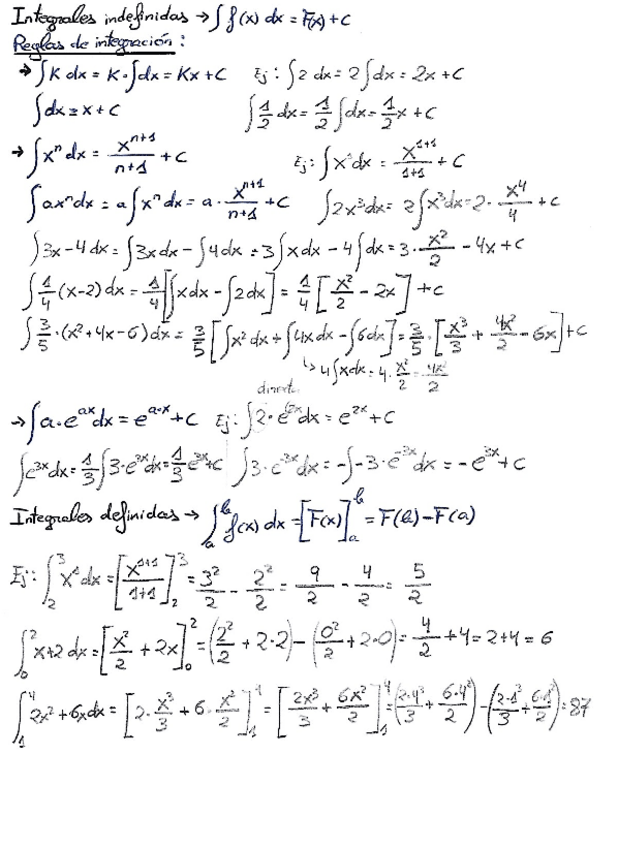 Integrales indefinidas → ∫ f(x) dx = F(x) + C
Reglas de integración:
→ ∫ K dx = K · ∫ dx = Kx + C Ej: ∫ 2 dx = 2 ∫ dx = 2x + C
∫ dx = x + C ∫ 1/2 dx = 1/2 ∫ dx = 1/2 x + C
→ ∫ xⁿ dx = xⁿ⁺¹/n+1 + C Ej: ∫ x¹ dx = x¹⁺¹/1+1 + C
∫ axⁿ dx = a ∫ xⁿ dx = a · xⁿ⁺¹/n+1 + C ∫ 2x³ dx = 2 ∫ x³ dx = 2 · x⁴/4 + C
∫ 3x - 4 dx = ∫ 3x dx - ∫ 4 dx = 3 ∫ x dx - 4 ∫ dx = 3 · x²/2 - 4x + C
∫ 1/4 (x-2) dx = 1/4 [∫ x dx - ∫ 2 dx] = 1/4 [x²/2 - 2x] + C
∫ 3/5 · (x² + 4x - 6) dx = 3/5 [∫ x² dx + ∫ 4x dx - ∫ 6 dx] = 3/5 · [x³/3 + 4x²/2 - 6x] + C
↳ 4 ∫ x dx = 4 · x²/2 = 4x²/2
direct.
→ ∫ a · e^(ax) dx = e^(a·x) + C Ej: ∫ 2 · e^(2x) dx = e^(2x) + C
∫ e^(3x) dx = 1/3 ∫ 3 · e^(3x) dx = 1/3 e^(3x) + C ∫ 3 · e^(-3x) dx = - ∫ -3 · e^(-3x) dx = - e^(-3x) + C
Integrales definidas → ∫ₐᵇ f(x) dx = [F(x)]ₐᵇ = F(b) - F(a)
Ej: ∫₂³ x¹ dx = [x¹⁺¹/1+1]₂³ = 3²/2 - 2²/2 = 9/2 - 4/2 = 5/2
∫₀² x + 2 dx = [x²/2 + 2x]₀² = (2²/2 + 2·2) - (0²/2 + 2·0) = 4/2 + 4 = 2 + 4 = 6
∫₁⁴ 2x² + 6x dx = [2 · x³/3 + 6 · x²/2]₁⁴ = [2x³/3 + 6x²/2]₁⁴ = (2·4³/3 + 6·4²/2) - (2·1³/3 + 6·1²/2) = 87